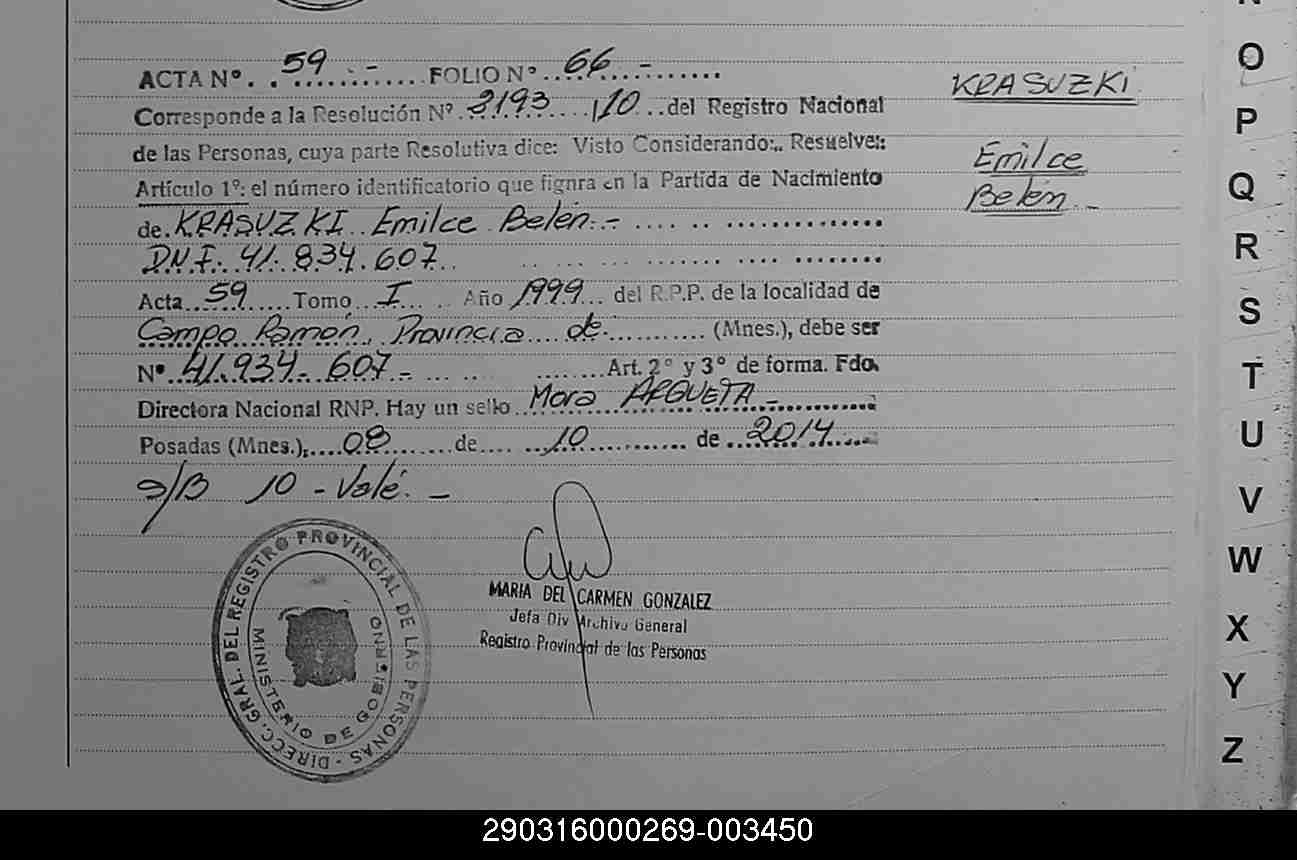 ACTA Nº. . 59 . - ........... FOLIO Nº...66...-.........
KRASUZKI
Corresponde a la Resolución Nº. 3193.....110...del Registro Nacional
de las Personas, cuya parte Resolutiva dice: Visto Considerando:.. Resuelve::
Emilce
Artículo 1º: el número identificatorio que fignra en la Partida de Nacimiento
Belén. -
de. KRASUZKI. Emilce Belén. -
D.N.I. 41. 834. 607..
Acta 59......Tomo I.... Año 1999... del R.P.P. de la localidad de
Campo Ramón, Provincia de........... (Mnes.), debe ser
Nº 41.934- 607 - ........Art. 2º y 3º de forma. Fdo.
Directora Nacional RNP. Hay un sello.. Mora ARGUETA -
Posadas (Mnes.),....08.......de.... ...10........... de ..2014.....
s/B 10 - Vale. -
DIRECC. GRAL. DEL REGISTRO PROVINCIAL DE LAS PERSONAS -
MINISTERIO DE GOBIERNO
MARIA DEL CARMEN GONZALEZ
Jefa Div Archivo General
Registro Provincial de las Personas
N
O
P
Q
R
S
T
U
V
W
X
Y
Z
290316000269-003450